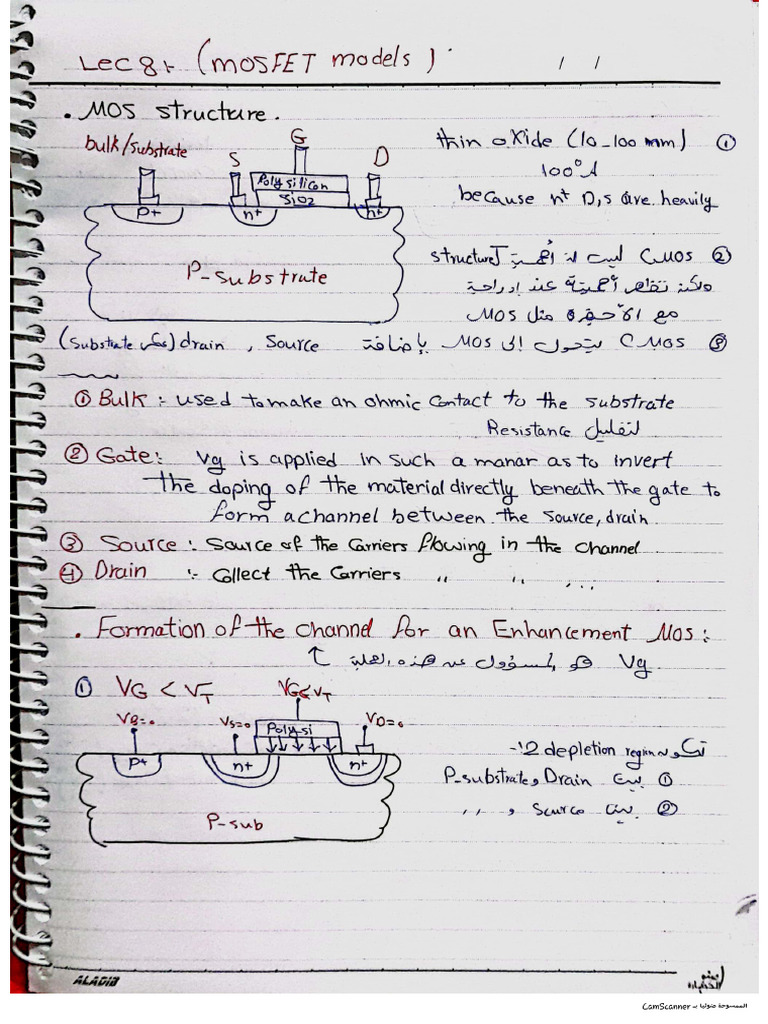 Lec 8:- (MOSFET models)
/ /
• MOS structure.
bulk/substrate
S
G
D
Poly silicon
SiO2
P+
n+
n+
P-substrate
thin oxide (10-100 mm) ①
100°A
because n+ D,S are heavily
② CMOS ليست له أهمية structure
ولكنه تظهر أهميته عند إدراجه
مع الأجهزة مثل MOS
③ CMOS يتحول إلى MOS بإضافة Source , drain (substrate على)
① Bulk : used to make an ohmic contact to the substrate
لتقليل Resistance
② Gate : Vg is applied in such a manar as to invert
the doping of the material directly beneath the gate to
form a channel between the source, drain
③ Source : Source of the Carriers flowing in the channel
④ Drain :- Collect the Carriers ,, ,, ...
• Formation of the channel for an Enhancement MOS :
Vg هو المسؤول عن هذه العملية
① VG < VT
VG < VT
VB=0
VS=0
VD=0
Poly-si
P+
n+
n+
P-sub
تكون 2 depletion region :-
① بين Drain و P-substrate
② بين Source و ,,
ALADIB
الممسوحة ضوئيا بـ CamScanner